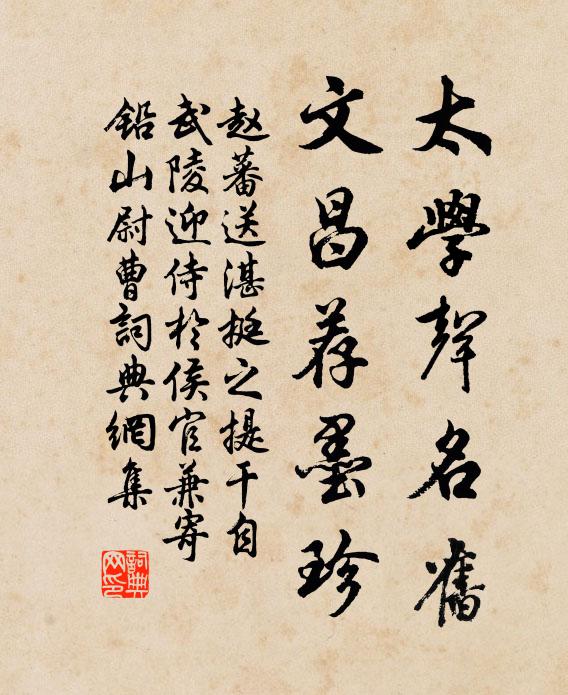 太學聲名舊
文昌荐墨珍
赵蕃送湛挺之提干自
武陵迎侍於侯官兼寄
铅山尉曹詞典網集
詞典网印